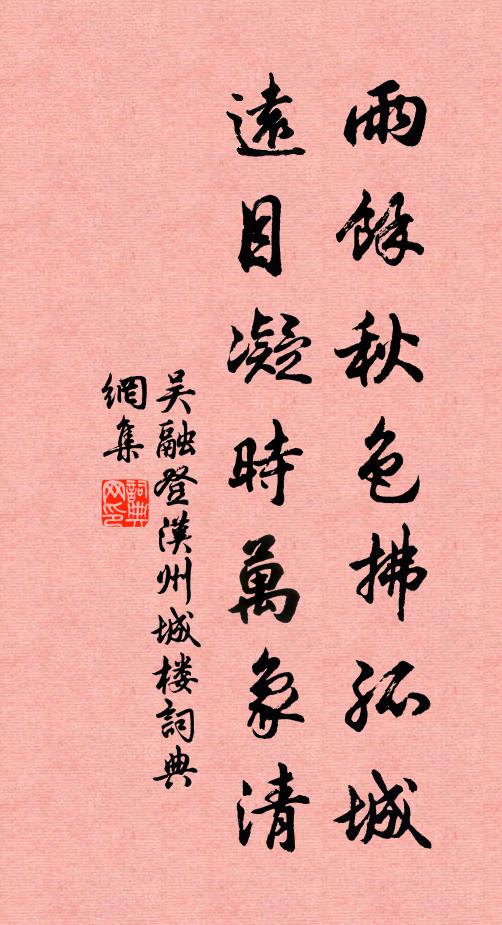 雨餘秋色拂孤城
遠目凝時萬象清
吴融登漢州城楼詞典
網集
詞典
网印